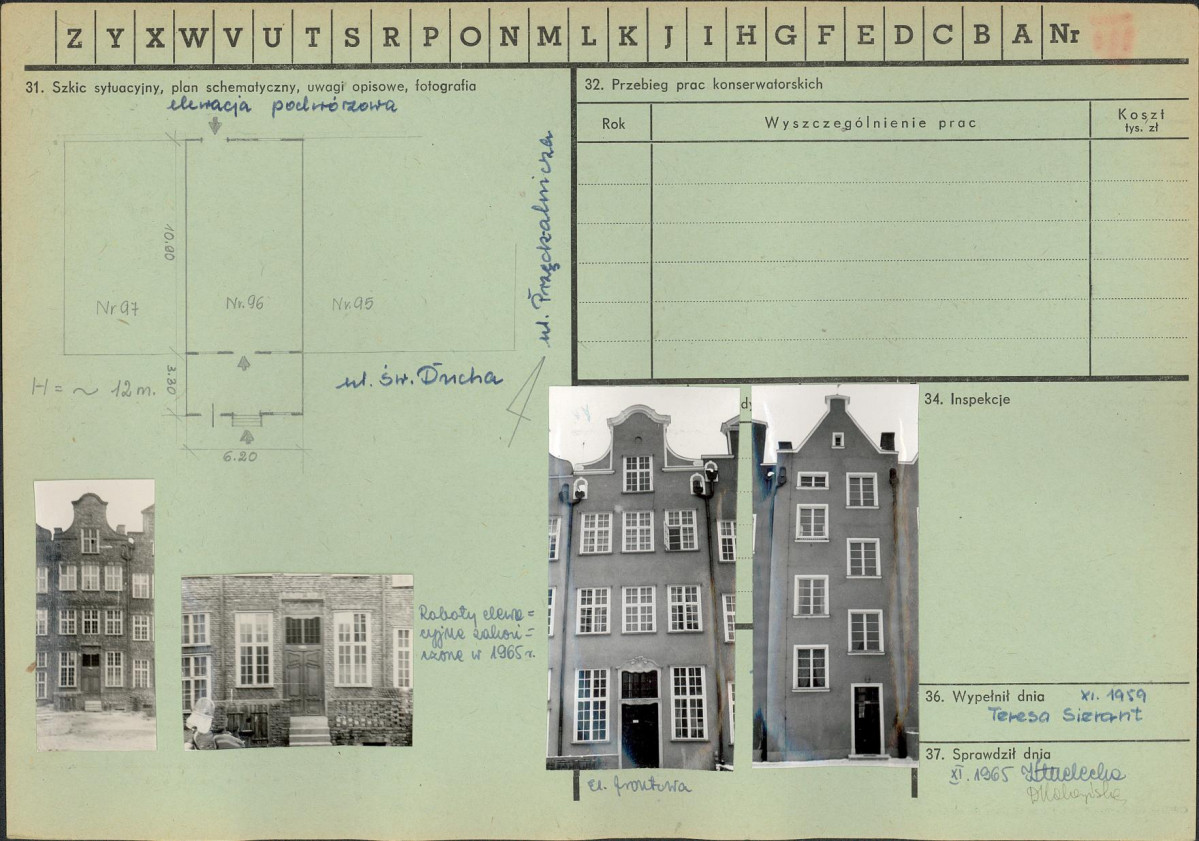 Z Y X W V U T S R P O N M L K J I H G F E D C B A Nr
III
31. Szkic sytuacyjny, plan schematyczny, uwagi opisowe, fotografia
elewacja podwórzowa
10.90
Nr 97
Nr. 96
Nr. 95
ul. Przędzalnicza
3.80
H = ~ 12 m.
ul. św. Ducha
6.20
Roboty elewa=
cyjne zakoń=
czone w 1965 r.
32. Przebieg prac konserwatorskich
Rok
Wyszczególnienie prac
Koszt
tys. zł
dy
34. Inspekcje
el. frontowa
36. Wypełnił dnia XI. 1959
Teresa Sierant
37. Sprawdził dnia
XI. 1965